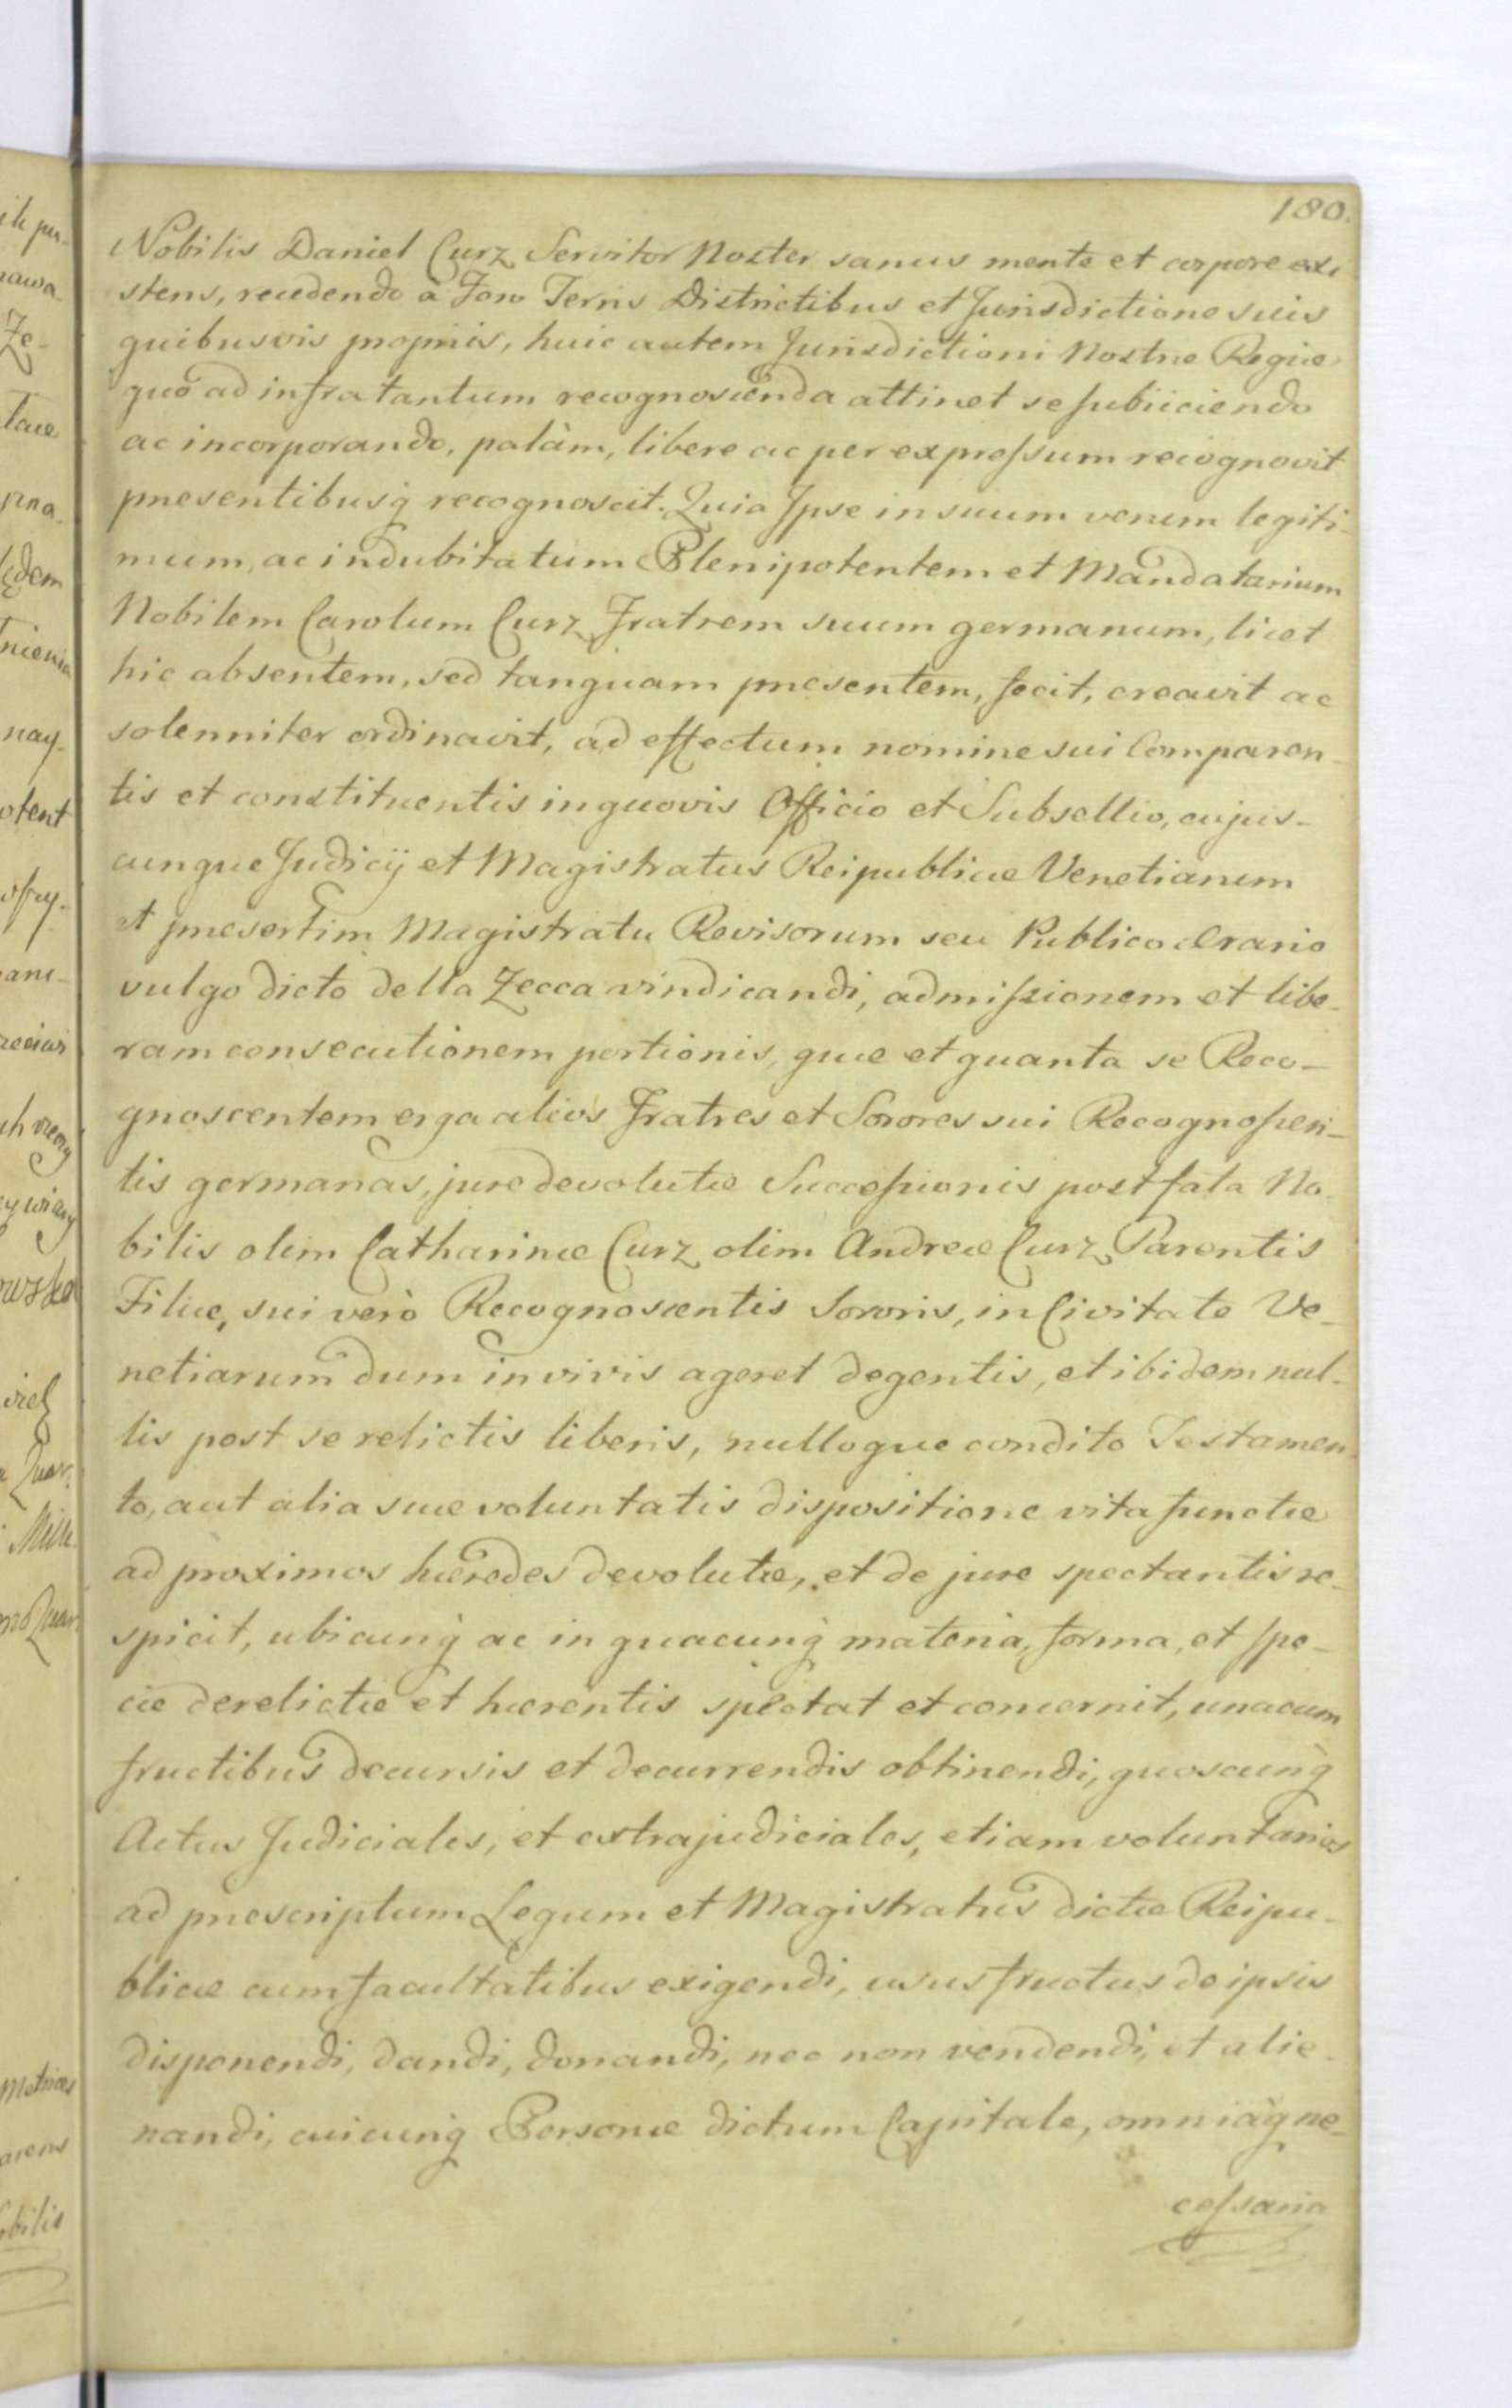 180.
Nobilis Daniel Curz Servitor Noster sanus mente et corpore exi
stens, recedendo à Foro Terris Districtibus et Jurisdictione suis
quibusvis proprijs, huic autem Jurisdictioni Nostræ Regiæ
quô ad infratantum recognoscenda attinet se subiiciendo
ac incorporando, palàm, libere ac per expreſsum recognovit
præsentibusq̀ recognoscit. Quia Ipse in suum verum legiti-
mum, ac indubitatum Plenipotentem et Mandatarium
Nobilem Carolum Curz Fratrem suum germanum, licet
hic absentem, sed tanquam præsentem, fecit, creavit ac
solenniter ordinavit, ad effectum nomine sui Comparen-
tis et constituentis in quovis Officio et Subsellio, cujus-
cunque Judicij et Magistratus Reipublicæ Venetiarum
et præsertim Magistratu Revisorum seu Publico Ærario
vulgo dicto della Zecca vindicandi, admiſsionem et libe-
ram consecutionem portionis, quæ et quanta se Reco-
gnoscentem erga alios Fratres et Sorores sui Recognoſcen-
tis germanas, jure devolutæ Succeſsionis post fata No-
bilis olim Catharinæ Curz olim Andreæ Curz Parentis
Filiæ, sui verò Recognoscentis Sororis, in Civitate Ve-
netiarum dum in vivis ageret degentis, et ibidem nul-
lis post se relictis liberis, nulloque condito Testamen-
to, aut alia suæ voluntatis dispositione vita functæ
ad proximos hæredes devolutæ, et de jure spectantis re-
spicit, ubicunq̀ ac in quacunq̀ materia, forma, et ſpe-
cie derelictæ et hærentis spectat et concernit, unacum
fructibus decursis et decurrendis obtinendi, quoscunq̀
Actus Judiciales, et extrajudiciales, etiam voluntarios
ad præscriptum Legum et Magistratus dictæ Reipu-
blicæ cum facultatibus exigendi, usus fructus de ipsis
disponendi, dandi, donandi, nec non vendendi, et alie-
nandi, cuicunq̀ Personæ dictum Capitale, omniaq̀ ne-
ceſsaria